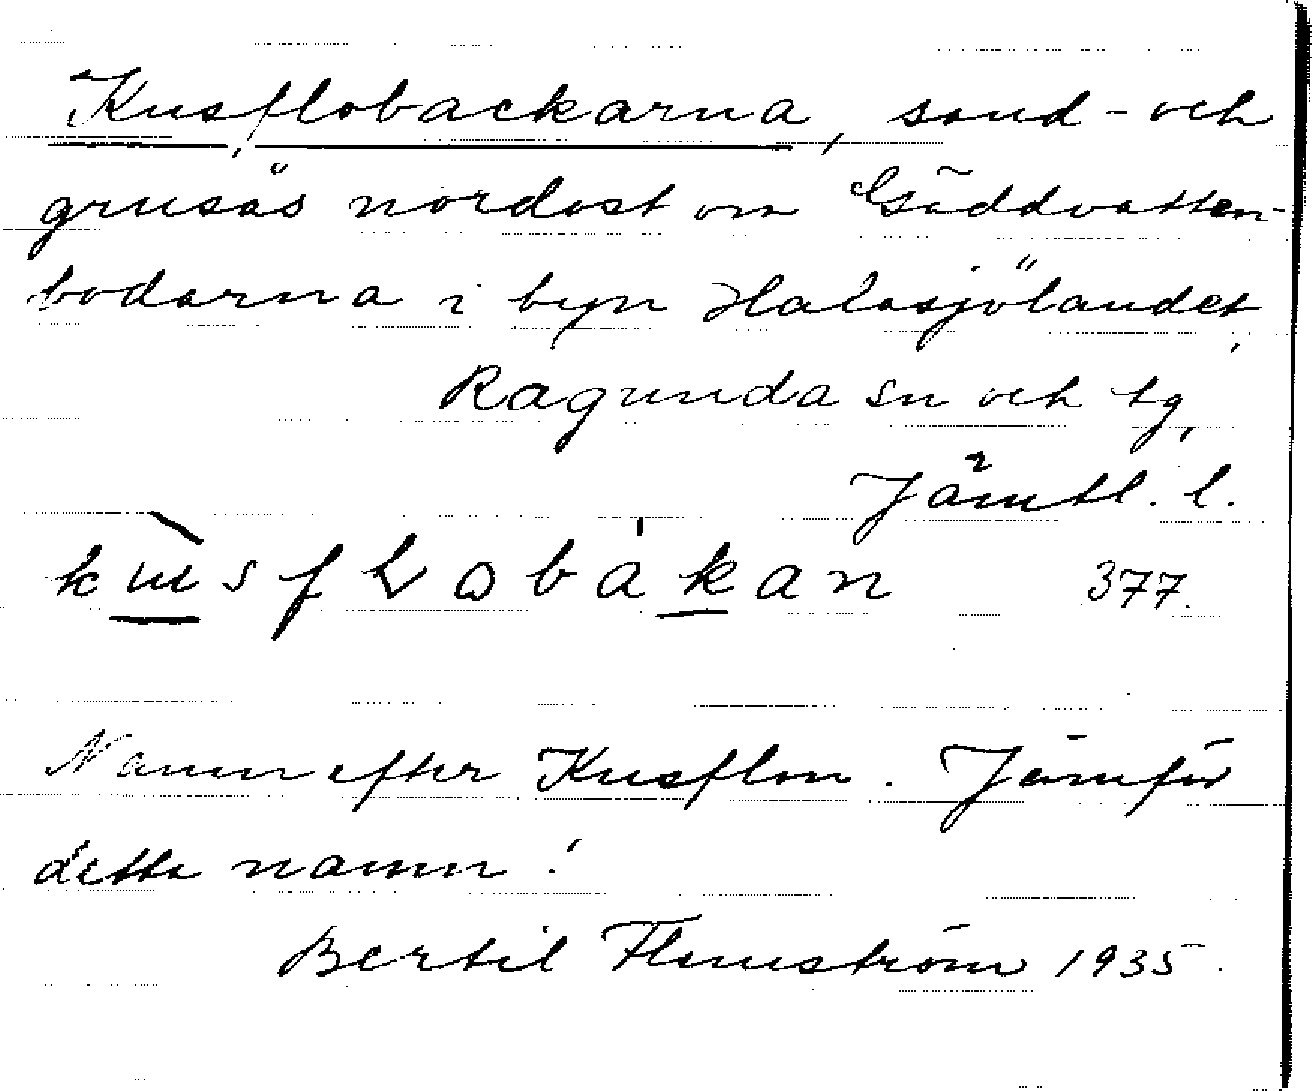 Kusflobackarna, sand- och
grusås nordost om Gäddvatten-
bodarna i byn Halasjölandet,
Ragunda sn och tg,
Jämtl. l.
377.
Namn efter Kusflon. Jämför
detta namn!
Bertil Flemström 1935.